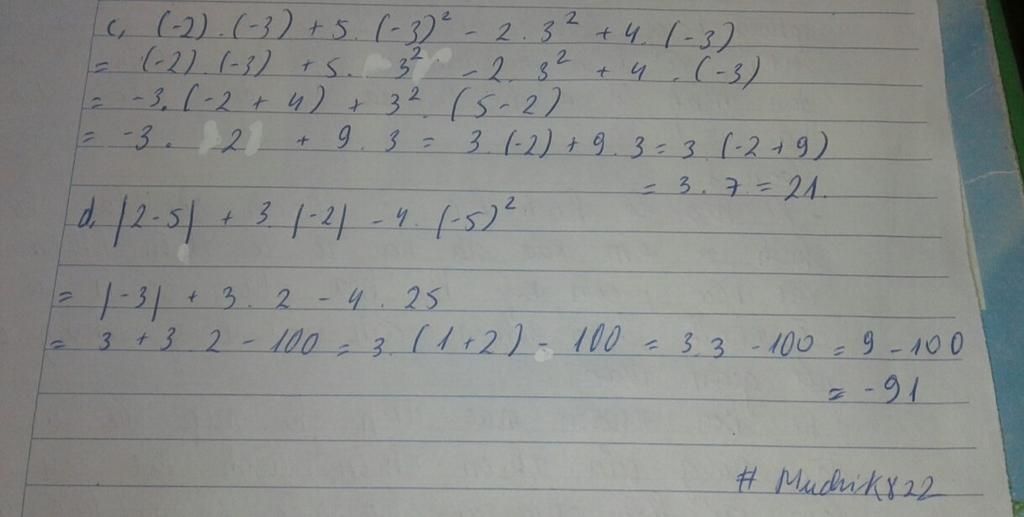 c, (-2) . (-3) + 5 . (-3)² - 2 . 3² + 4 . (-3)
= (-2) . (-3) + 5 . 3² - 2 . 3² + 4 . (-3)
= -3 . (-2 + 4) + 3² . (5 - 2)
= -3 . 2 + 9 . 3 = 3 . (-2) + 9 . 3 = 3 . (-2 + 9)
= 3 . 7 = 21.
d, |2 - 5| + 3 . |-2| - 4 . (-5)²
= |-3| + 3 . 2 - 4 . 25
= 3 + 3 . 2 - 100 = 3 . (1 + 2) - 100 = 3 . 3 - 100 = 9 - 100
= -91